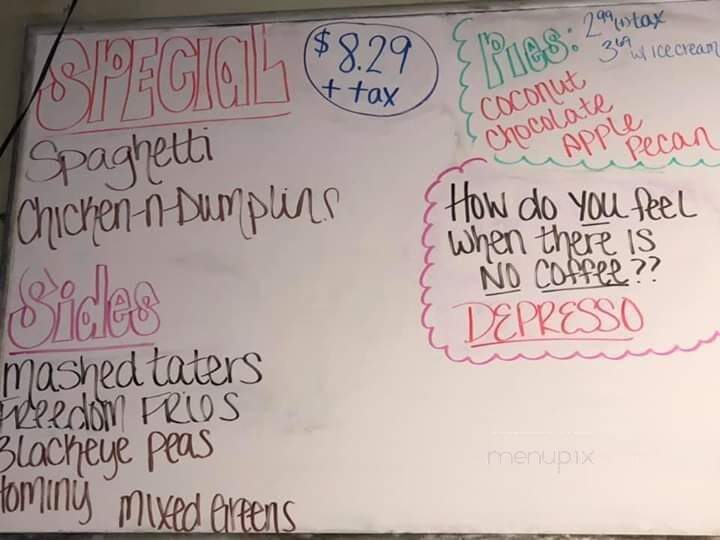 SPECIAL
$8.29
+ tax
Spaghetti
Chicken-n-Dumplins
Sides
mashed taters
FREEdom FRIES
Blackeye peas
Hominy mixed Greens
Pies: 2.99 (+) tax
3.69 w/ icecream
Coconut
Chocolate
APPLE
Pecan
How do you feel
when there is
NO Coffee??
DEPRESSO
menupix